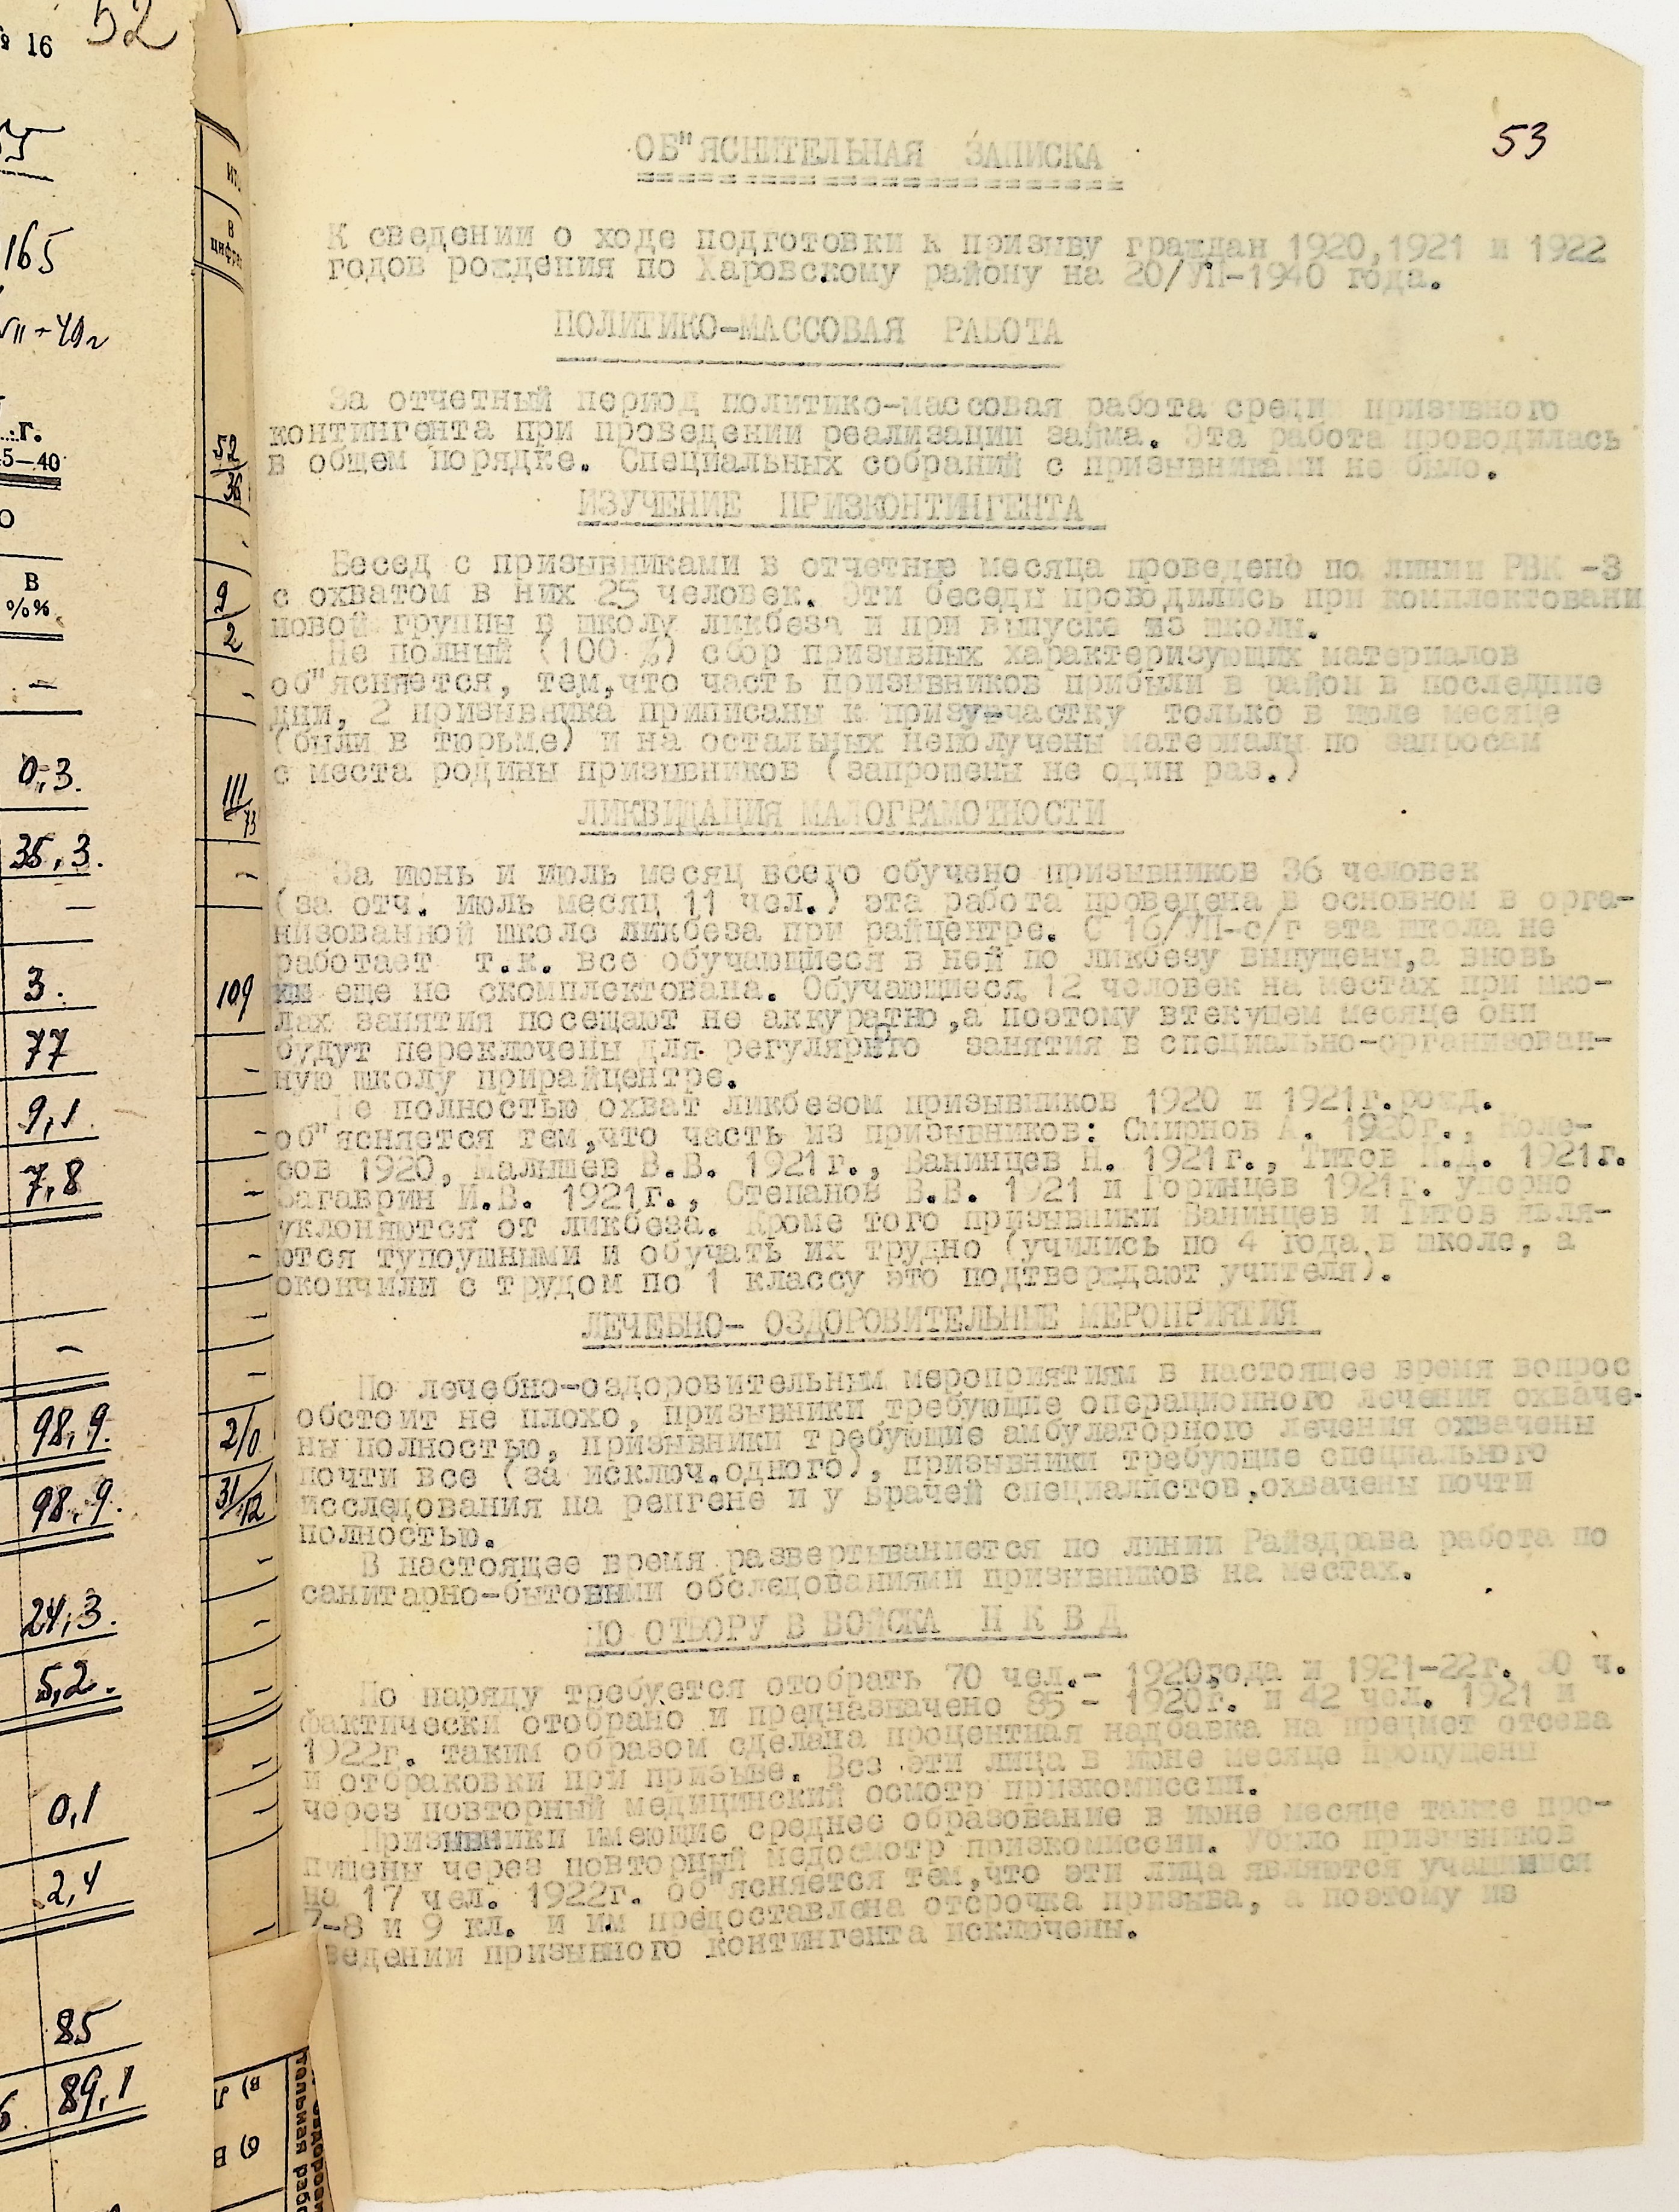 № 16
52
165
VII-40г
г.
5-40
О
В
%%
—
0,3.
35,3.
—
3.
77
9,1.
7,8
-
98,9.
98,9.
24,3.
5,2.
0,1
2,4
85
89,1
В
цифрах
52/36
9/2
111/73
109
2/0
31/12
53
ОБ"ЯСНИТЕЛЬНАЯ ЗАПИСКА
К сведении о ходе подготовки к призыву граждан 1920,1921 и 1922
годов рождения по Харовскому району на 20/УП-1940 года.
ПОЛИТИКО-МАССОВАЯ РАБОТА
За отчетный период политико-массовая работа среди призывного
контингента при проведении реализации займа. Эта работа проводилась
в общем порядке. Специальных собраний с призывниками не было.
ИЗУЧЕНИЕ ПРИЗКОНТИНГЕНТА
Бесед с призывниками в отчетные месяца проведено по линии РВК -3
с охватом в них 25 человек. Эти беседы проводились при комплектовани
новой группы в школу ликбеза и при выпуске из школы.
Не полный (100 %) сбор призывных характеризующих материалов
об"ясняется, тем,что часть призывников прибыли в район в последние
дни, 2 призывника приписаны к призу-частку только в июле месяце
(были в тюрьме) и на остальных неполучены материалы по запросам
с места родины призывников (запрошены не один раз.)
ЛИКВИДАЦИЯ МАЛОГРАМОТНОСТИ
За июнь и июль месяц всего обучено призывников 36 человек
(за отч. июль месяц 11 чел.) эта работа проведена в основном в орга-
низованной школе ликбеза при райцентре. С 16/УП-с/г эта школа не
работает т.к. все обучающиеся в ней по ликбезу выпущены,а вновь
еще не скомплектована. Обучающиеся 12 человек на местах при шко-
лах занятия посещают не аккуратно,а поэтому втекущем месяце они
будут переключены для регулярного занятия в специально-организован-
ную школу прирайцентре.
Не полностью охват ликбезом призывников 1920 и 1921г.рожд.
об"ясняется тем,что часть из призывников: Смирнов А. 1920г., Коле-
сов 1920, Малышев В.В. 1921г., Ванинцев Н. 1921г., Титов И.Д. 1921г.
Загаврин И.В. 1921г., Степанов В.В. 1921 и Горинцев 1921г. упорно
уклоняются от ликбеза. Кроме того призывники Ванинцев и Титов явля-
ются тупоушными и обучать их трудно (учились по 4 года в школе, а
окончили с трудом по 1 классу это подтверждают учителя).
ЛЕЧЕБНО- ОЗДОРОВИТЕЛЬНЫЕ МЕРОПРИЯТИЯ
По лечебно-оздоровительным мероприятиям в настоящее время вопрос
обстоит не плохо, призывники требующие операционного лечения охваче-
ны полностью, призывники требующие амбулаторного лечения охвачены
почти все (за исключ.одного), призывники требующие специального
исследования на ренгене и у врачей специалистов,охвачены почти
полностью.
В настоящее время развертываниется по линии Райздрава работа по
санитарно-бытовыми обследованиями призывников на местах.
ПО ОТБОРУ В ВОЙСКА Н К В Д
По наряду требуется отобрать 70 чел.- 1920года и 1921-22г. 30 ч.
фактически отобрано и предназначено 85 - 1920г. и 42 чел. 1921 и
1922г. таким образом сделана процентная надбавка на предмет отсева
и отбраковки при призыве. Все эти лица в июне месяце пропущены
через повторный медицинский осмотр призкомиссии.
Призывники имеющие среднее образование в июне месяце также про-
пущены через повторный медосмотр призкомиссии. Убыло призывников
на 17 чел. 1922г. об"ясняется тем,что эти лица являются учащимися
7-8 и 9 кл. и им предоставлена отсрочка призыва, а поэтому из
ведении призывного контингента исключены.
тельная рабо